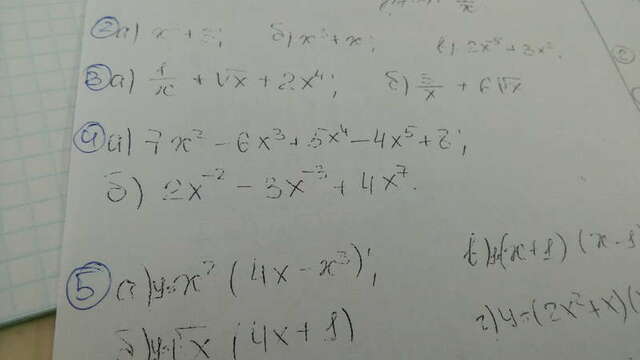 ② а) x² + 3; б) x³ + x; в) 2x⁻⁵ + 3x²;
③ а) 1/x + √x + 2x⁴; б) 3/x + 6√x
④ а) 7x² - 6x³ + 5x⁴ - 4x⁵ + 8;
б) 2x⁻² - 3x⁻³ + 4x⁷.
⑤ а) y=x² (4x - x³); в) y=(x+1) (x-1
б) y=√x (4x+1) г) y=(2x²+x)